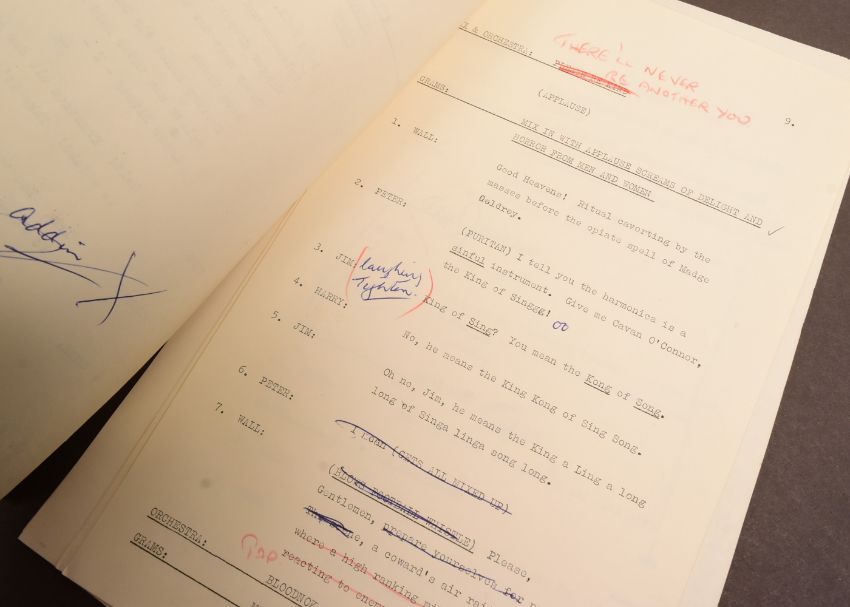 Addin
X & ORCHESTRA:
THERE'LL NEVER
BE ANOTHER YOU
9.
(APPLAUSE)
GRAMS:
MIX IN WITH APPLAUSE SCREAMS OF DELIGHT AND
HORROR FROM MEN AND WOMEN
1. WALL:
Good Heavens! Ritual cavorting by the
masses before the opiate spell of Madge
Geldrey.
2. PETER:
(PURITAN) I tell you the harmonica is a
sinful instrument. Give me Cavan O'Connor,
the King of Singgg!
3. JIM:
laughing
Tighten.
King of Sing? You mean the Kong of Song.
4. HARRY:
No, he means the King Kong of Sing Song.
5. JIM:
Oh no, Jim, he means the King a Ling a long
long of Singa linga song long.
6. PETER:
I mean (GETS ALL MIXED UP)
7. WALL:
(BLOWS FOOTBALL WHISTLE) Please,
Gentlemen, prepare yourselves for
a coward's air
where a high ranking
reacting to
ORCHESTRA:
GRAMS:
Top
BLOODNOK